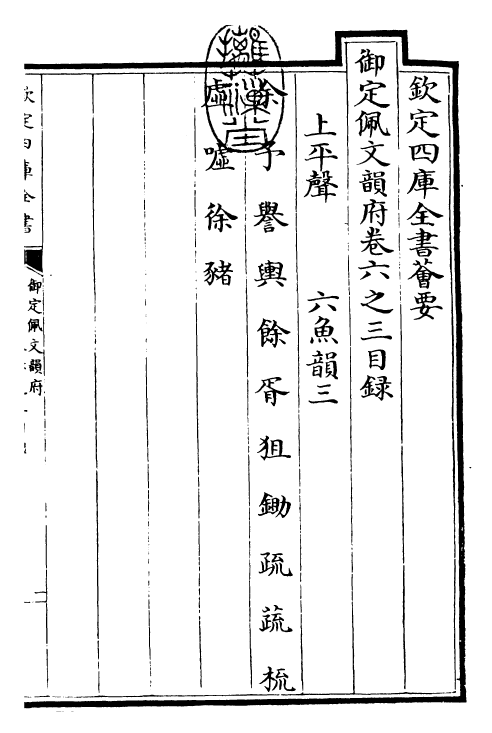 欽定四庫全書薈要
御定佩文韻府卷六之三目録
上平聲　六魚韻三
余予譽輿餘胥狙鋤疏蔬梳
虛噓徐豬
欽定四庫全書
御定佩文韻府